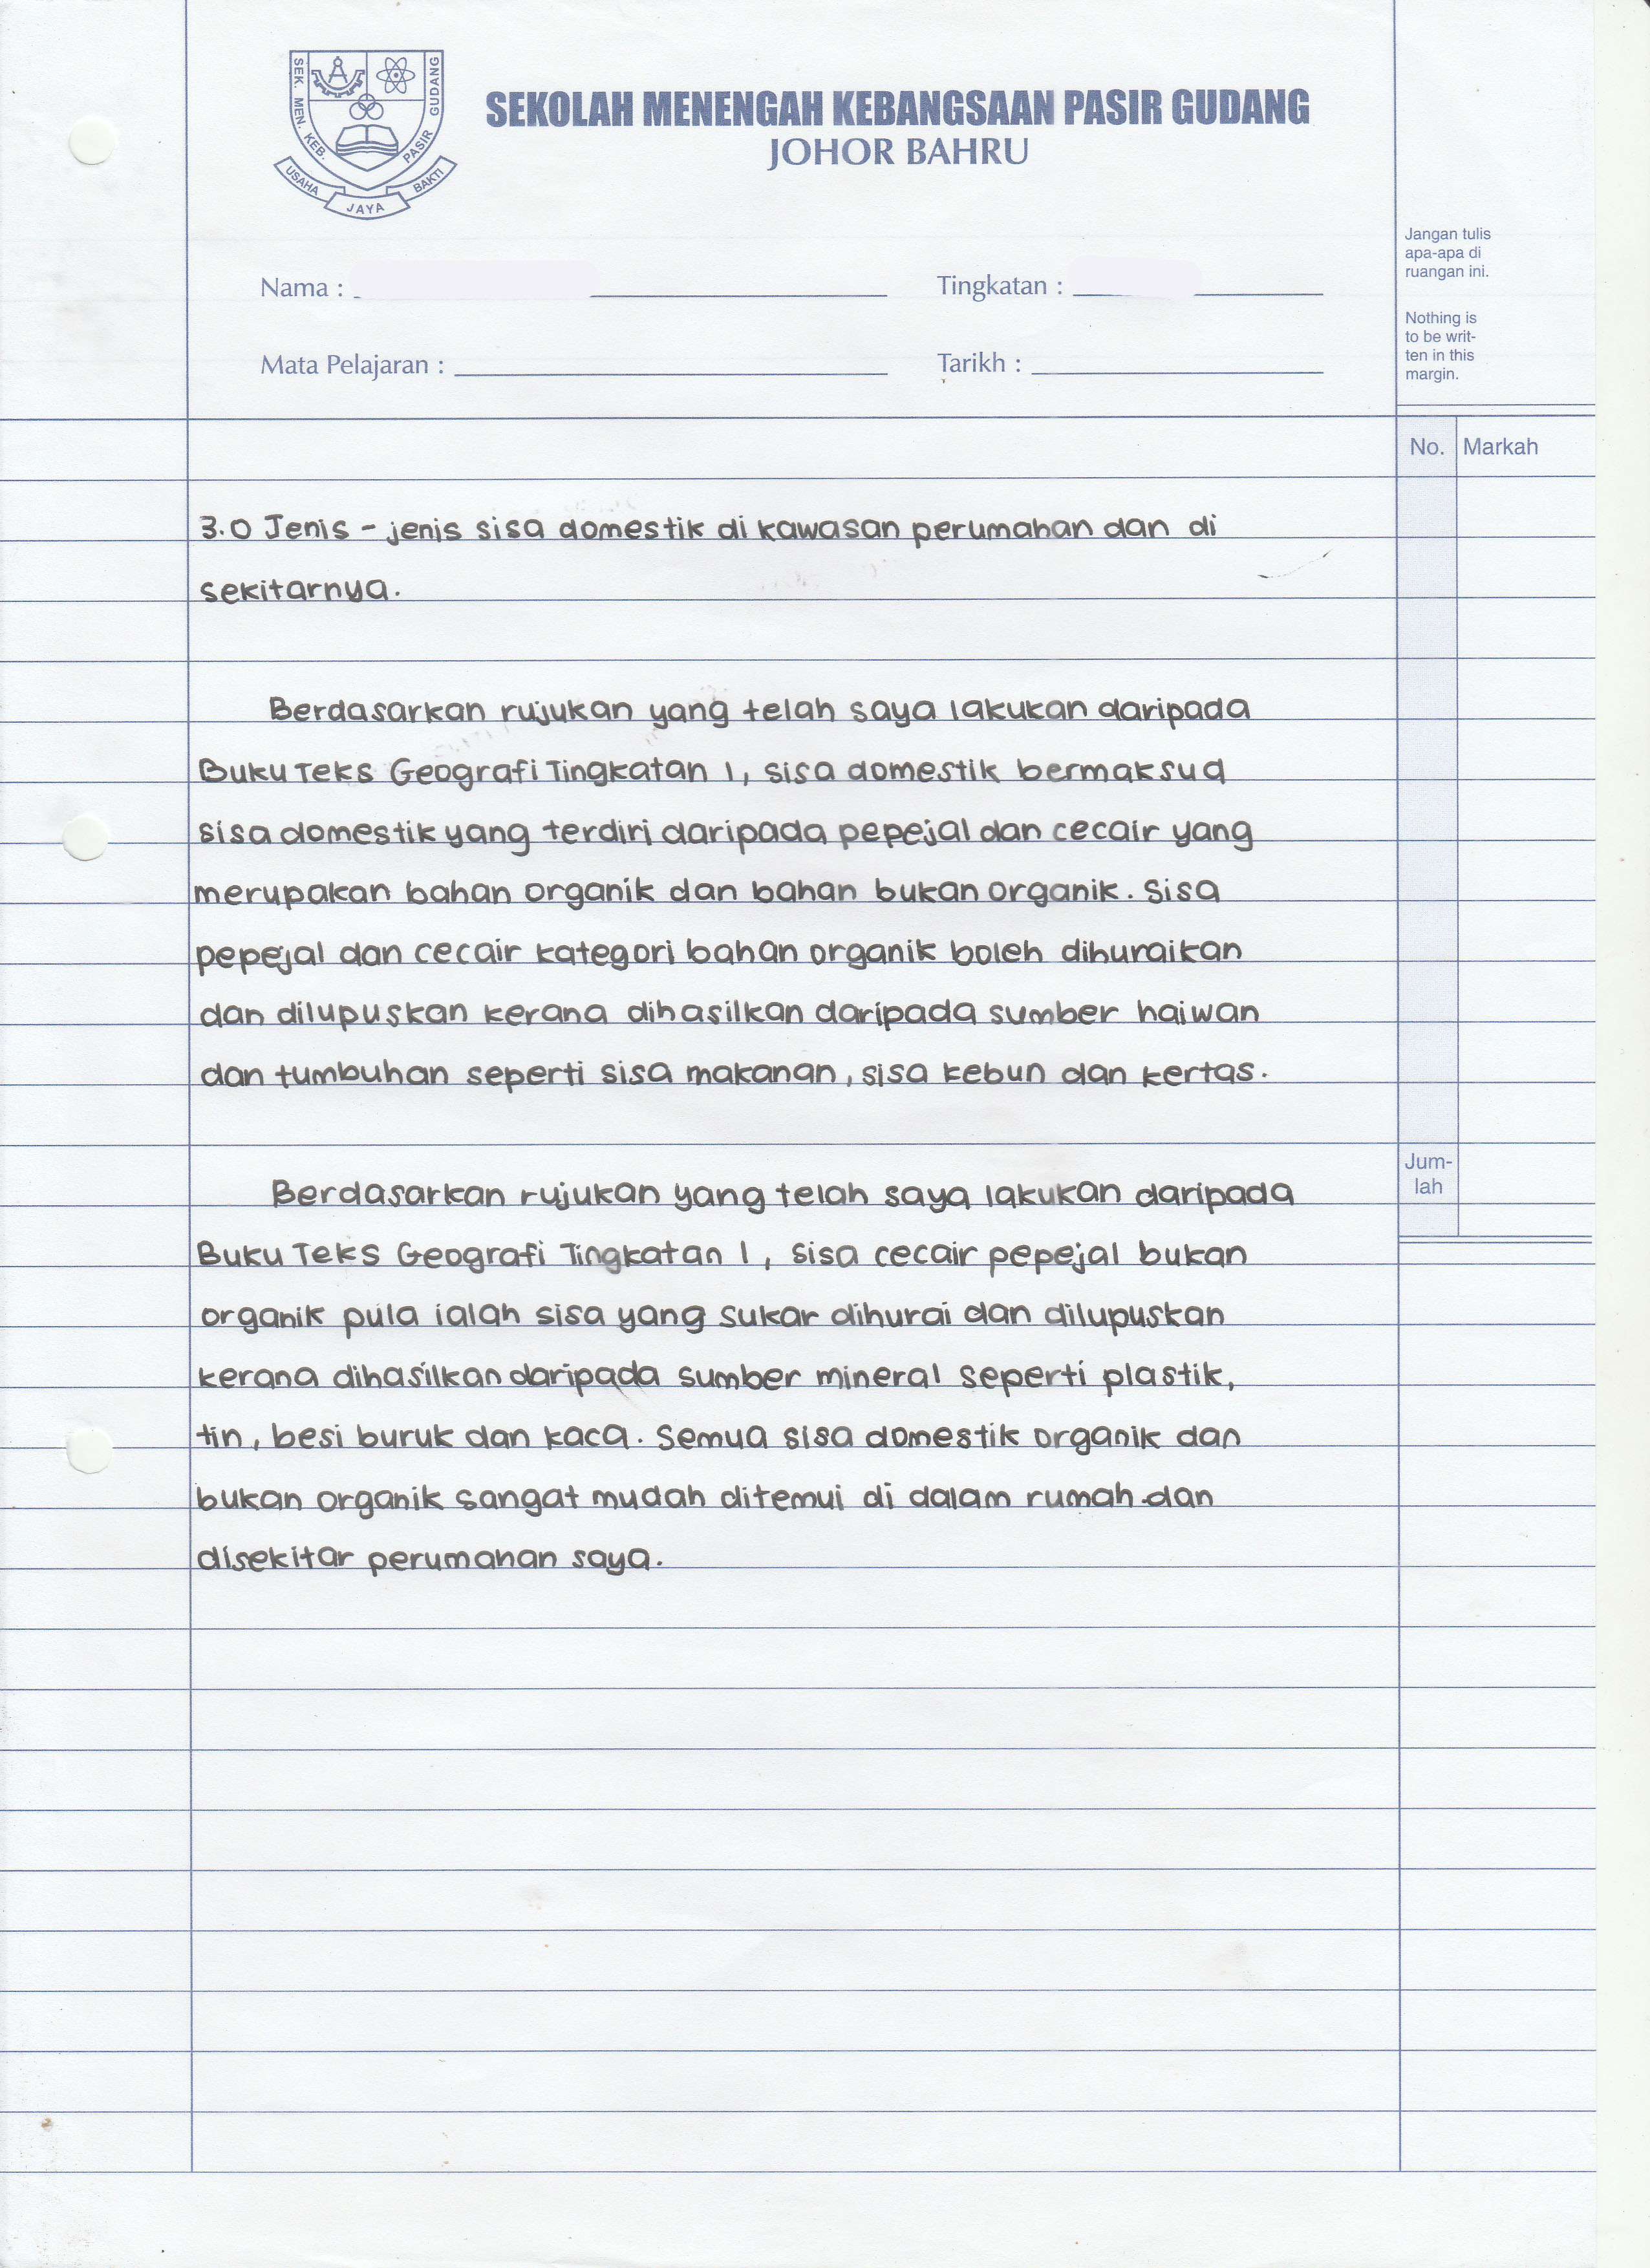 SEK. MEN. KEB. PASIR GUDANG
USAHA JAYA BAKTI
SEKOLAH MENENGAH KEBANGSAAN PASIR GUDANG
JOHOR BAHRU
Jangan tulis
apa-apa di
ruangan ini.
Nama : Tingkatan :
Nothing is
to be writ-
ten in this
margin.
Mata Pelajaran : Tarikh :
No. Markah
3.0 Jenis - jenis sisa domestik di kawasan perumahan dan di
sekitarnya.
Berdasarkan rujukan yang telah saya lakukan daripada
Buku Teks Geografi Tingkatan 1, sisa domestik bermaksud
sisa domestik yang terdiri daripada pepejal dan cecair yang
merupakan bahan organik dan bahan bukan organik. Sisa
pepejal dan cecair kategori bahan organik boleh dihuraikan
dan dilupuskan kerana dihasilkan daripada sumber haiwan
dan tumbuhan seperti sisa makanan, sisa kebun dan kertas.
Jum-
lah
Berdasarkan rujukan yang telah saya lakukan daripada
Buku Teks Geografi Tingkatan 1, sisa cecair pepejal bukan
organik pula ialah sisa yang sukar dihurai dan dilupuskan
kerana dihasilkan daripada sumber mineral seperti plastik,
tin, besi buruk dan kaca. Semua sisa domestik organik dan
bukan organik sangat mudah ditemui di dalam rumah dan
disekitar perumahan saya.